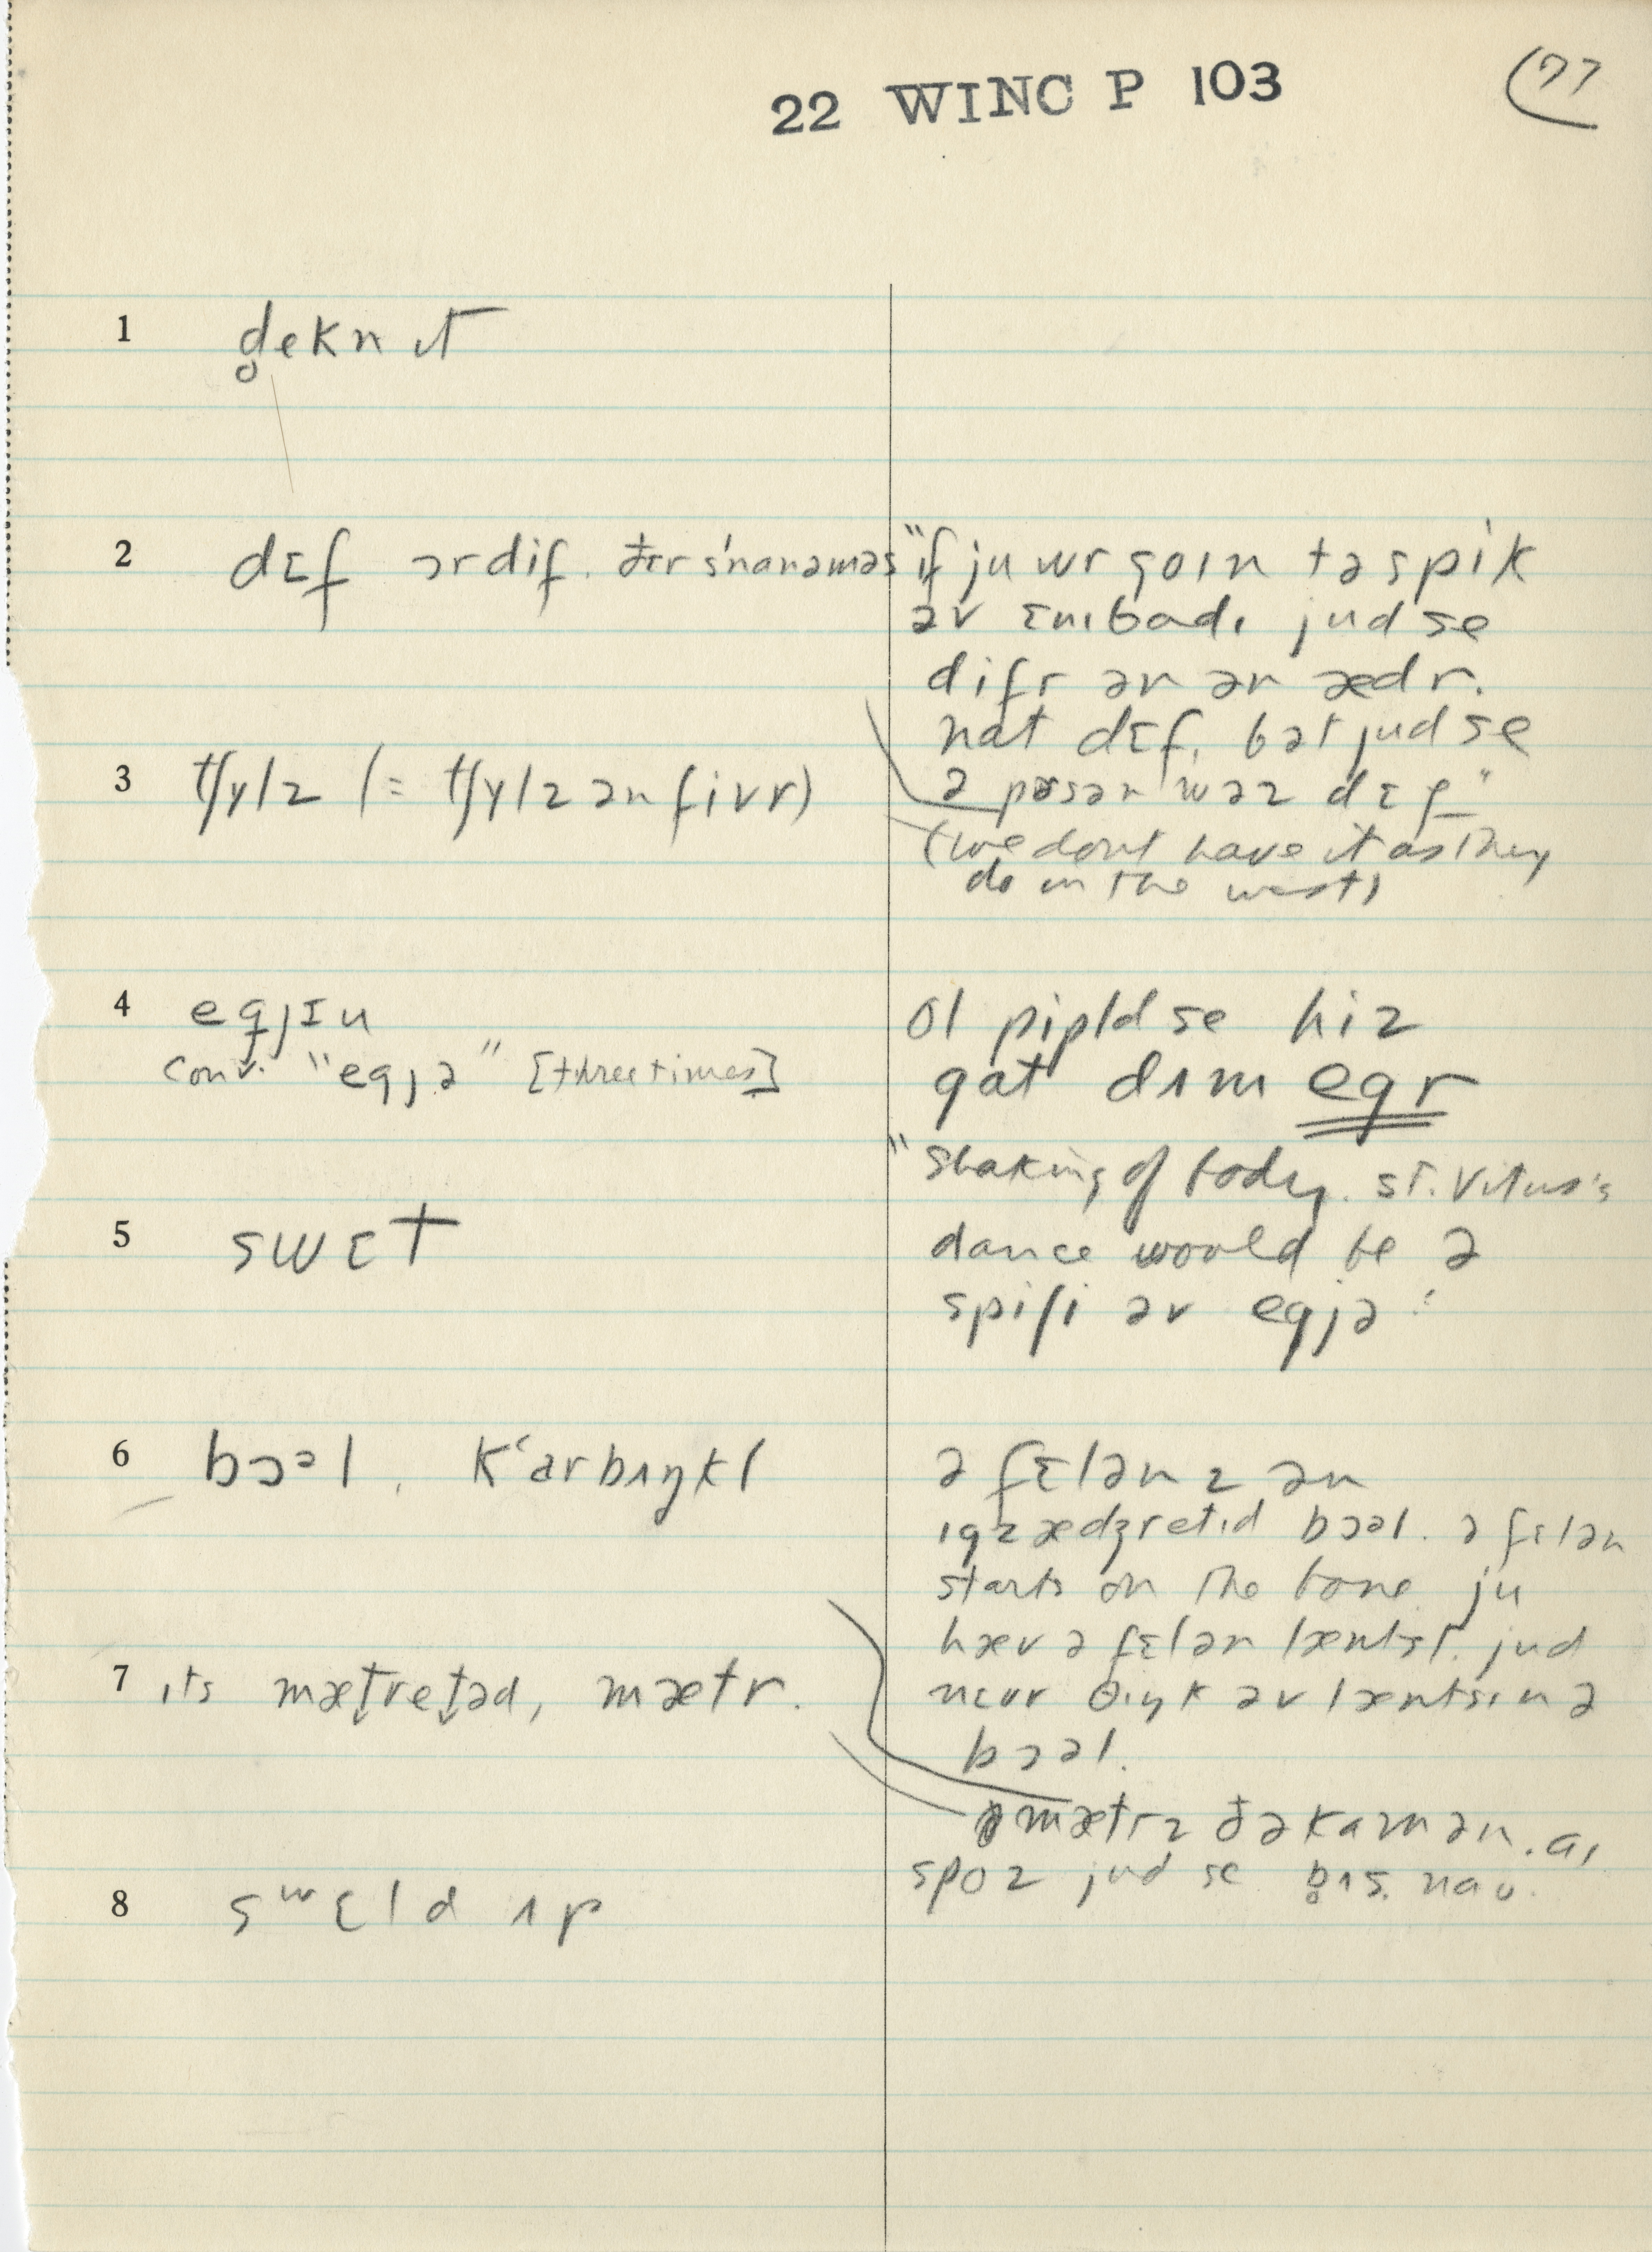 22 WINC P 103
77
1 d̥ekn ɪt
2 dɛf ɔrdif. ðɛr s'nanəməs
"if ju wr goɪn tə spik
əv ɛnɪbadɪ jud se
difr ən ən ædr.
nat dɛf, bət jud se
ə pɚsən wəz dɛf"
(we dont have it as they
do in the west)
3 tʃylz (= tʃylz ən fivr)
4 egjɪu
conv. "egjə" [three times]
ol pipld se hiz
gat ðɪm egr
"shaking of body. St. Vitus's
dance would be ə
spiʃi əv egjə"
5 swɛt
6 bɔəl, k'arbʌŋkl
ə fɛlənz ən
ɪgzædʒretɪd bɔəl. ə fɛlən
starts on the bone ju
hæv ə fɛlən læntst. jud
nɛvr θɪŋk əv læntsɪn ə
bɔəl.
7 ɪts mætretəd, mætr.
mætrz ðə kamən. aɪ
spoz jud se b̥ʌs naʊ.
8 swɛld ʌp